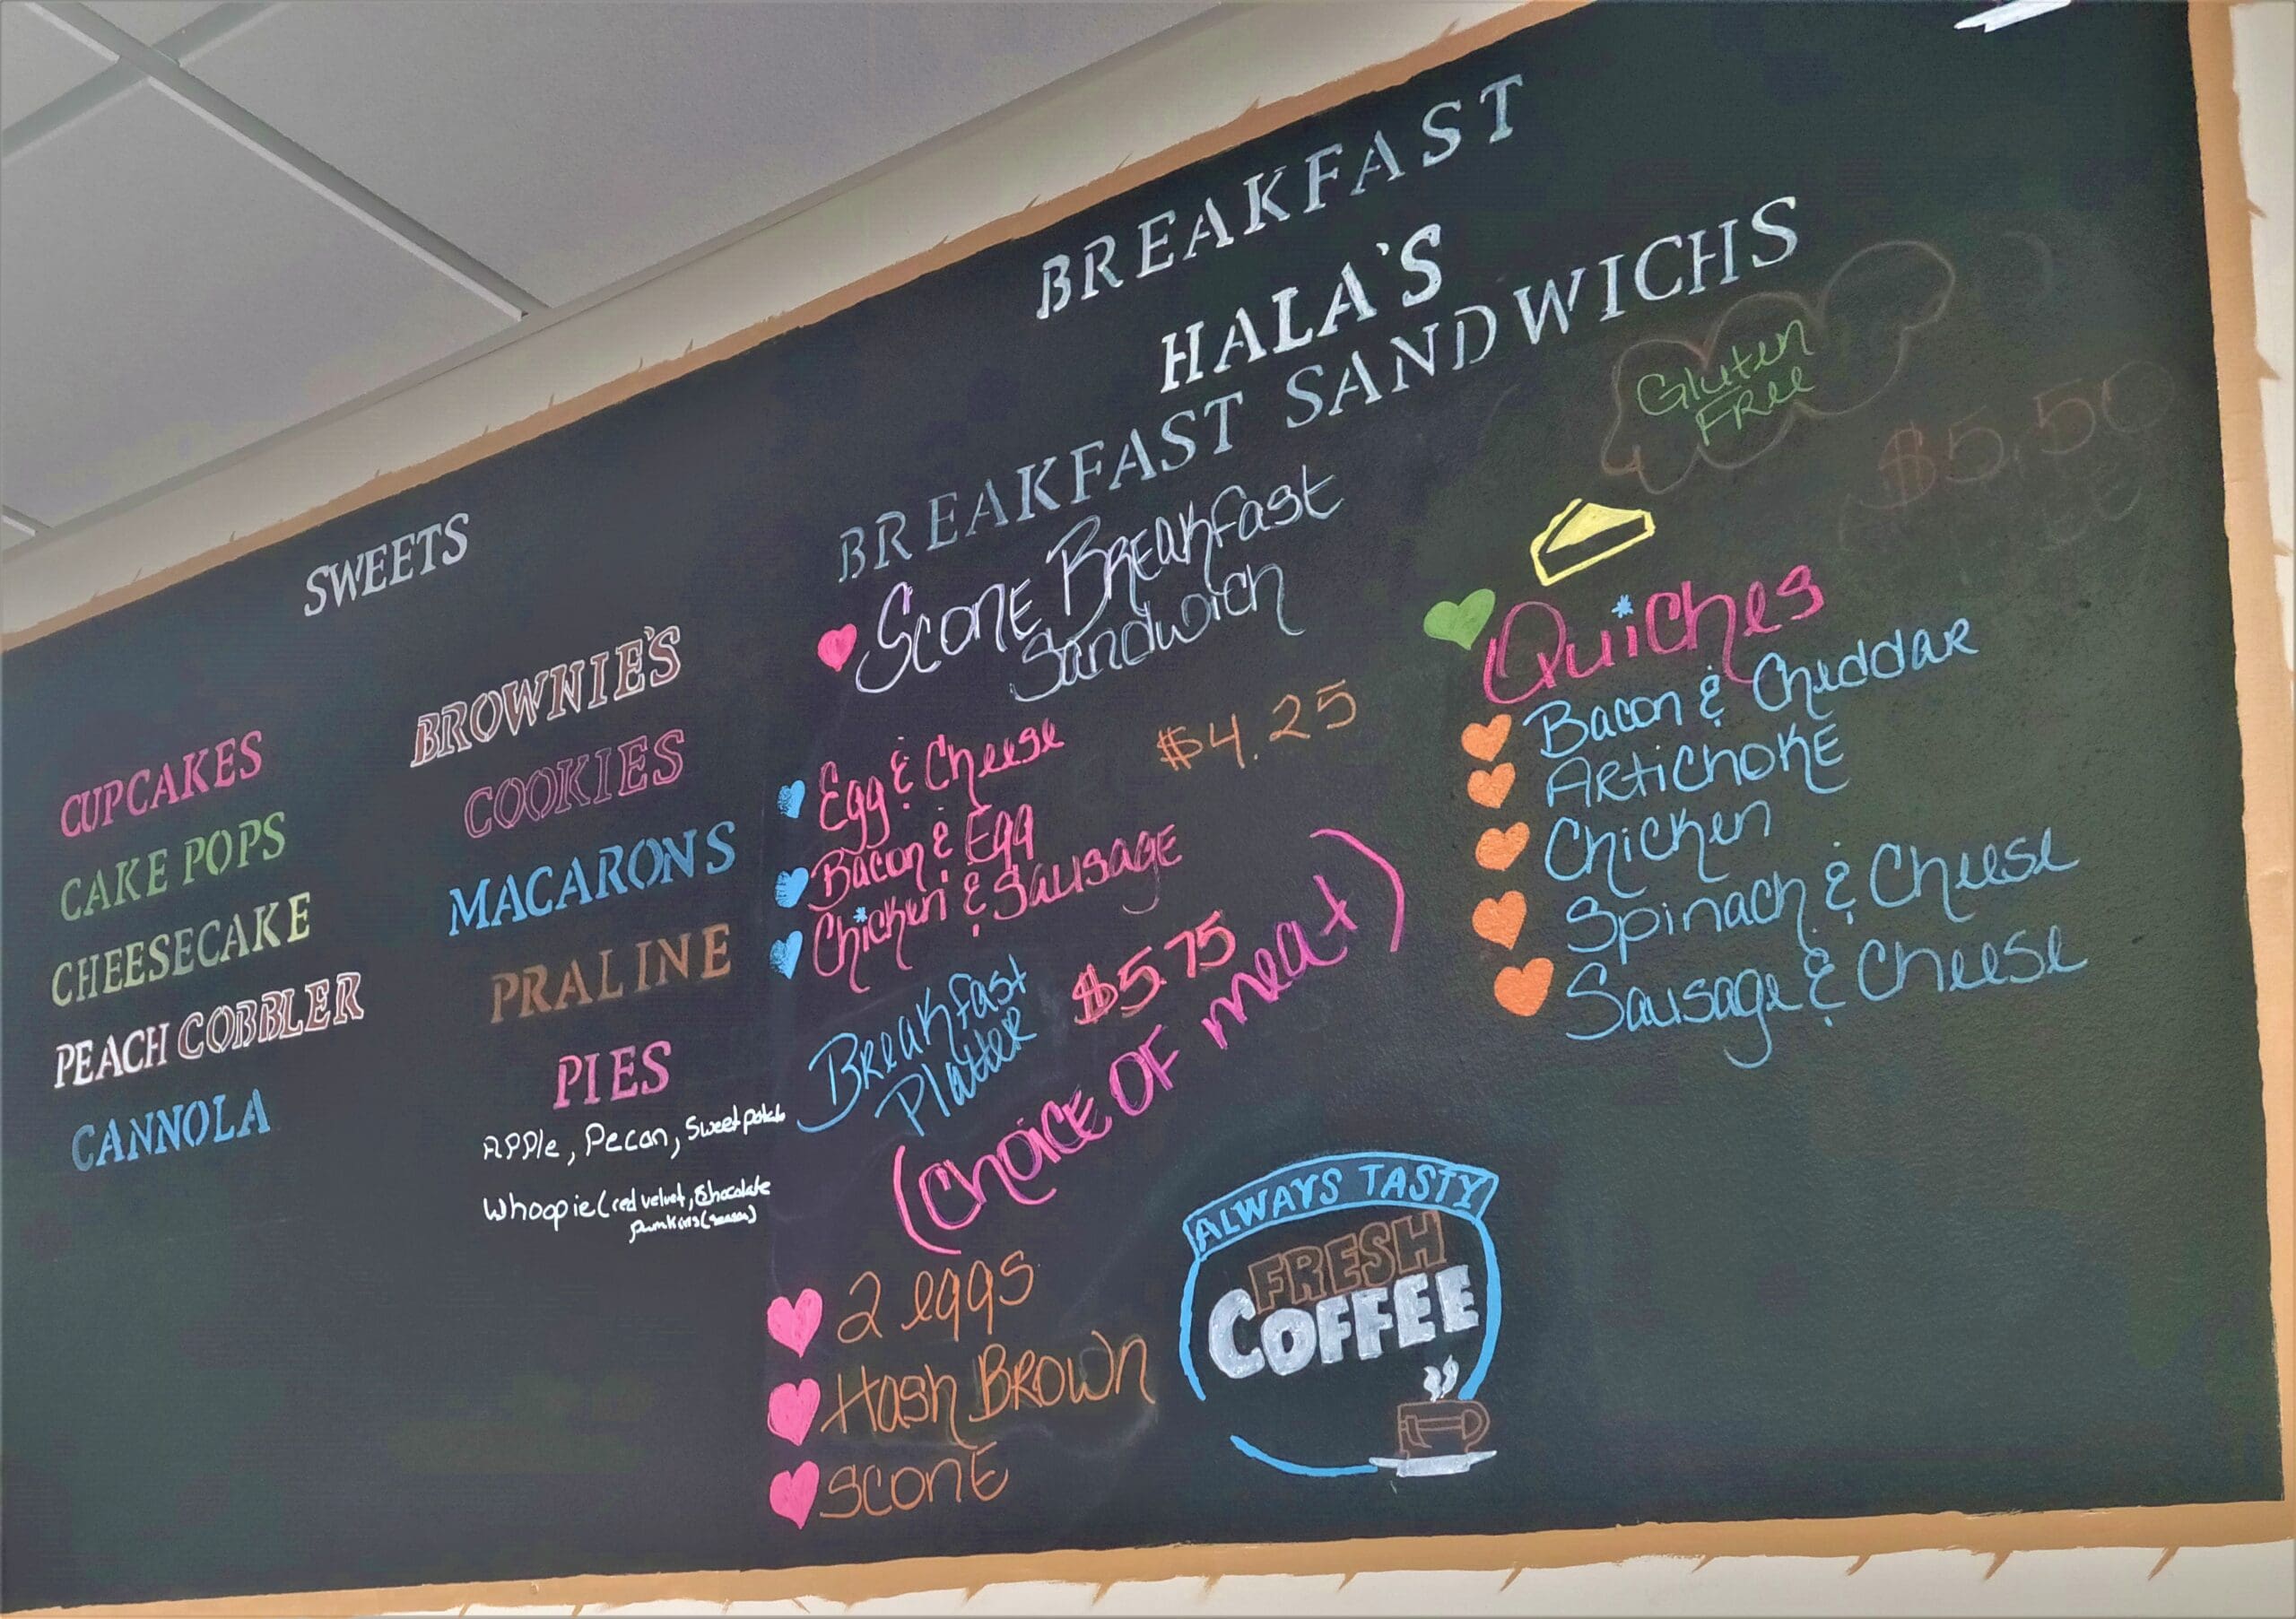 SWEETS
CUPCAKES
CAKE POPS
CHEESECAKE
PEACH COBBLER
CANNOLA
BROWNIE'S
COOKIES
MACARONS
PRALINE
PIES
Apple, Pecan, Sweet potato
Whoopie (red velvet, chocolate
BREAKFAST
HALA'S
BREAKFAST SANDWICHS
Scone Breakfast
Sandwich
Egg & Cheese
$4.25
Bacon & Egg
Chicken & Sausage
Breakfast
Platter
$5.75
(Choice OF meat)
2 eggs
Hash Brown
Scone
Gluten
Free
$5.50
Quiches
Bacon & Cheddar
Artichoke
Chicken
Spinach & Cheese
Sausage & Cheese
ALWAYS TASTY
FRESH
COFFEE